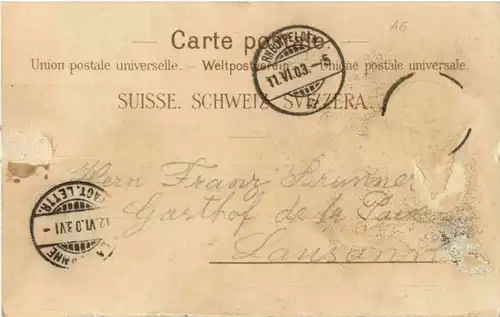 AG
Carte postale.
Union postale universelle. — Weltpostverein. — Unione postale universale.
SUISSE. SCHWEIZ. SVIZZERA.
RHEINFELDEN
11.VI.03.–5
Herrn Franz Brunner
Gasthof de la Paix
Lausanne
FACT. LETTR.
12.VI.03.VI–